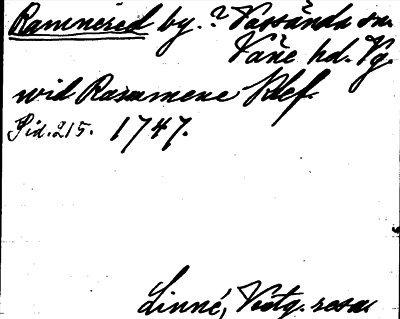 Ramnered by. ? Vassända sn.
Väne hd. Vg.
wid Rasamene Klef.
Sid. 215. 1747.
Linné, Västg. resa